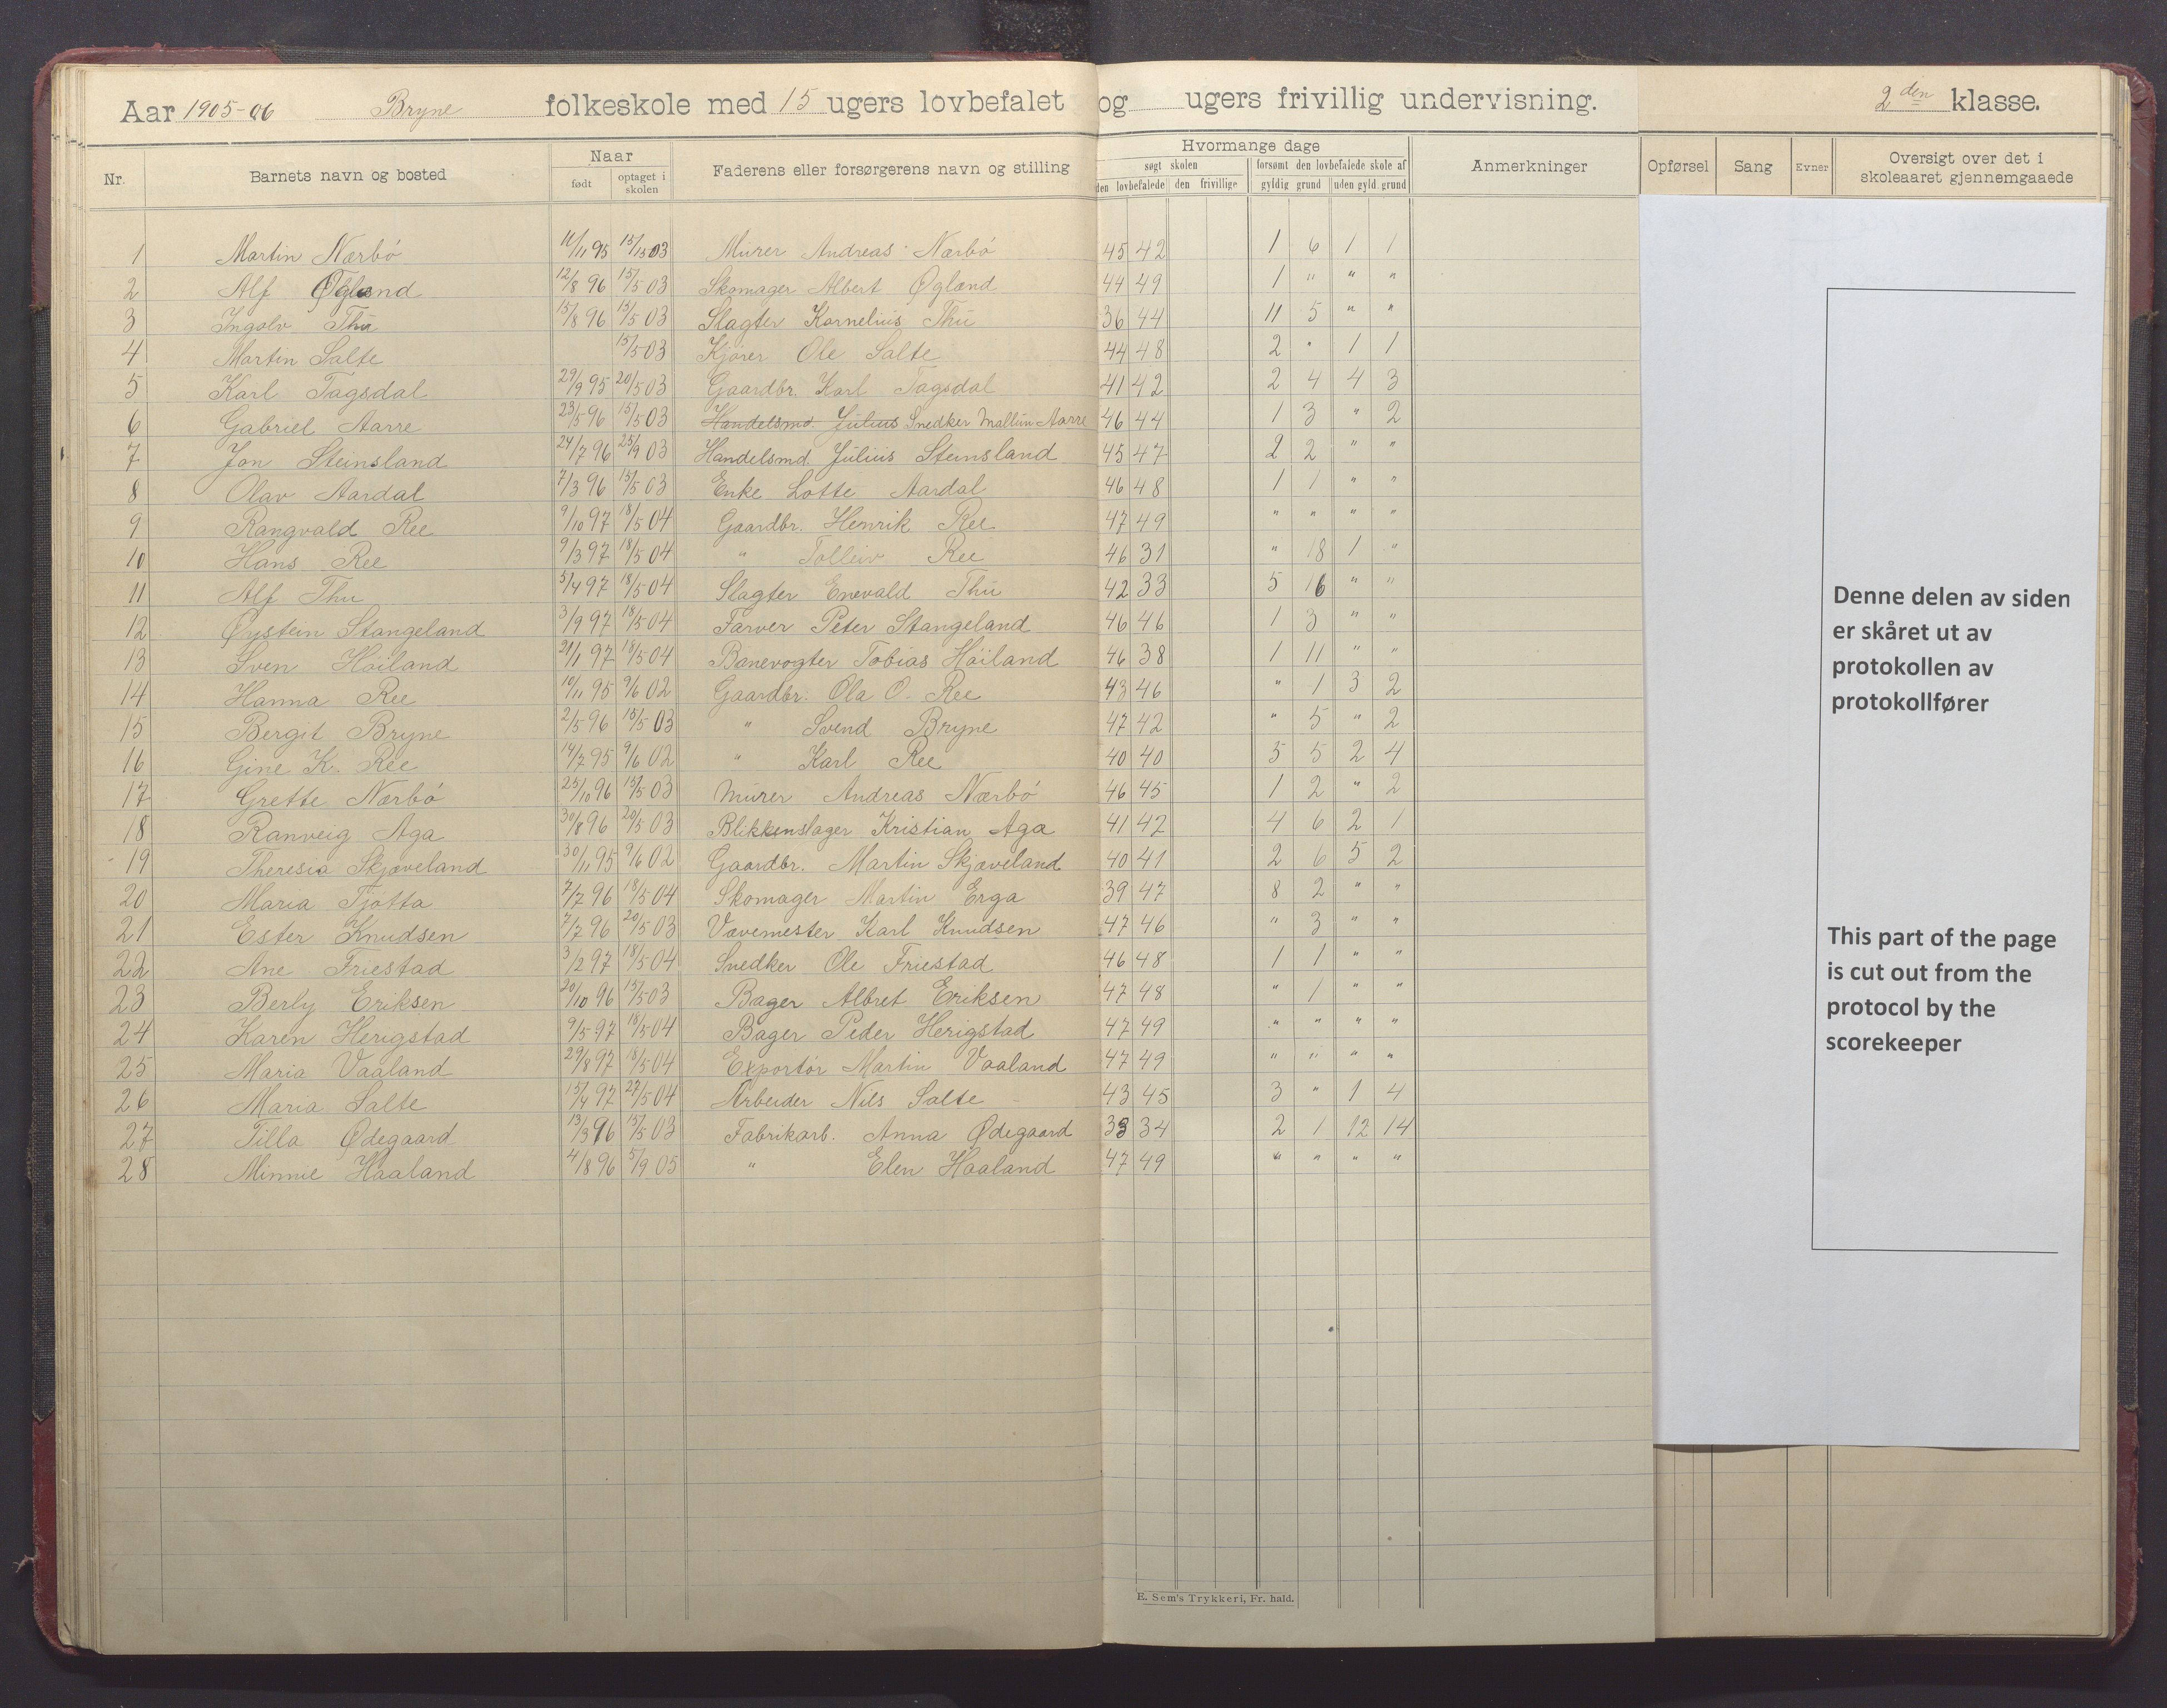 Aar 1905-06 Bryne folkeskole med 15 ugers lovbefalet og ugers frivillig undervisning. 2den klasse.
Nr. Barnets navn og bosted Naar født optaget i skolen Faderens eller forsørgerens navn og stilling Hvormange dage søgt skolen den lovbefalede den frivillige forsømt den lovbefalede skole af gyldig grund uden gyld. grund Anmerkninger Opførsel Sang Evner Oversigt over det i skoleaaret gjennemgaaede
1 Martin Nærbø 11/11 95 15/5 03 Murer Andreas Nærbø 45 42 1 6 1 1
2 Alf Øgland 12/8 96 15/5 03 Skomager Albert Øgland 44 49 1 " " "
3 Ingolv Thu 15/8 96 15/5 03 Slagter Kornelius Thu 36 44 11 5 " "
4 Martin Salte 15/5 03 Kjører Ole Salte 44 48 2 " 1 1
5 Karl Tagsdal 29/9 95 20/5 03 Gaardbr. Karl Tagsdal 41 42 2 4 4 3
6 Gabriel Aarre 23/5 96 15/5 03 Handelsmd. Julius Snedker Mallun Aarre 46 44 1 3 " 2
7 Jon Steinsland 24/7 96 25/9 03 Handelsmd. Julius Steinsland 45 47 2 2 " "
8 Olav Aardal 7/3 96 15/5 03 Enke Lotte Aardal 46 48 1 1 " "
9 Rangvald Ree 9/10 97 18/5 04 Gaardbr. Henrik Ree 47 49 " " " "
10 Hans Ree 9/3 97 18/5 04 " Tolleiv Ree 46 31 " 18 1 "
11 Alf Thu 5/4 97 18/5 04 Slagter Enevald Thu 42 33 5 16 " "
12 Øystein Stangeland 3/9 97 18/5 04 Farver Peter Stangeland 46 46 1 3 " "
13 Sven Høiland 21/1 97 18/5 04 Banevogter Tobias Høiland 46 38 1 11 " "
14 Hanna Ree 10/11 95 9/6 02 Gaardbr. Ola O. Ree 43 46 " 1 3 2
15 Bergit Bryne 2/5 96 15/5 03 " Svend Bryne 47 42 " 5 " 2
16 Gine K. Ree 14/7 95 9/6 02 " Karl Ree 40 40 5 5 2 4
17 Grette Nærbø 25/10 96 15/5 03 Murer Andreas Nærbø 46 45 1 2 " 2
18 Ranveig Aga 30/8 96 20/5 03 Blikkenslager Kristian Aga 41 42 4 6 2 1
19 Theresia Skjæveland 30/11 95 9/6 02 Gaardbr. Martin Skjæveland 40 41 2 6 5 2
20 Maria Tjøtta 7/7 96 18/5 04 Skomager Martin Erga 39 47 8 2 " "
21 Ester Knudsen 7/7 96 20/5 03 Vævemester Karl Knudsen 47 46 " 3 " "
22 Ane Friestad 3/2 97 18/5 04 Snedker Ole Friestad 46 48 1 1 " "
23 Berly Eriksen 20/10 96 15/5 03 Bager Albret Eriksen 47 48 " 1 " "
24 Karen Herigstad 9/5 97 18/5 04 Bager Peder Herigstad 47 49 " " " "
25 Maria Vaaland 29/8 97 18/5 04 Exportør Martin Vaaland 47 49 " " " "
26 Maria Salte 15/4 97 27/5 04 Arbeider Nils Salte 43 45 3 " 1 4
27 Tilla Ødegaard 13/3 96 15/5 03 Fabrikarb. Anna Ødegaard 33 34 2 1 12 14
28 Minnie Haaland 4/8 96 5/9 05 " Elen Haaland 47 49 " " " "
E. Sem's Trykkeri, Fr. hald.
Denne delen av siden
er skåret ut av
protokollen av
protokollfører
This part of the page
is cut out from the
protocol by the
scorekeeper